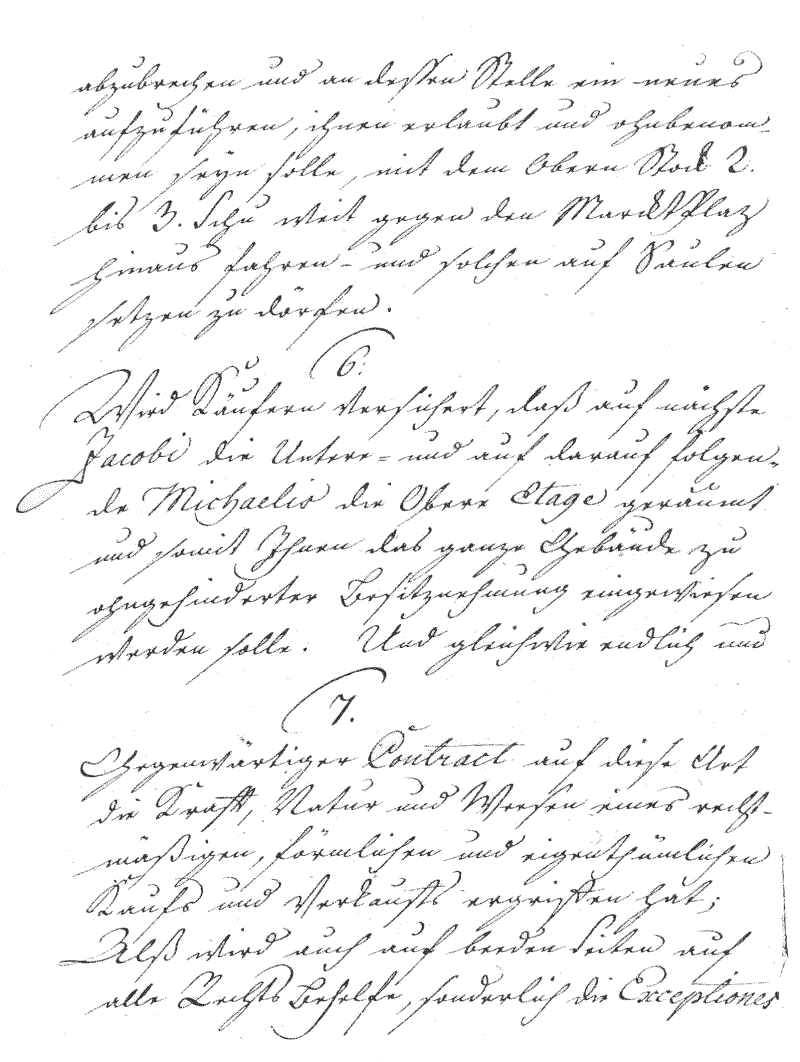 abzubrechen und an dessen Stelle ein neues
aufzuführen, ihnen erlaubt und ohnbenom-
men seyn solle, mit dem Obern Stock 2.
bis 3. Schu weit gegen den MarcktPlaz
hinaus fahren - und solchen auf Säulen
setzen zu dörfen.
6.
Wird Käufern versichert, daß auf nächste
Jacobi die Untere = und auf darauf folgen-
de Michaelis die Obere Etage geräumt
und somit Ihnen das ganze Gebäude zu
ohngehinderter Besitznehmung eingewiesen
werden solle. Und gleichwie endlich nun
7.
Gegenwärtiger Contract auf diese Art
die Krafft, Natur und Weesen eines recht-
mäßigen, förmlichen und eigenthümlichen
Kaufs und Verkaufs ergriffen hat;
Alß wird auch auf beeden Seiten auf
alle RechtsBehelfe, sonderlich die Exceptiones